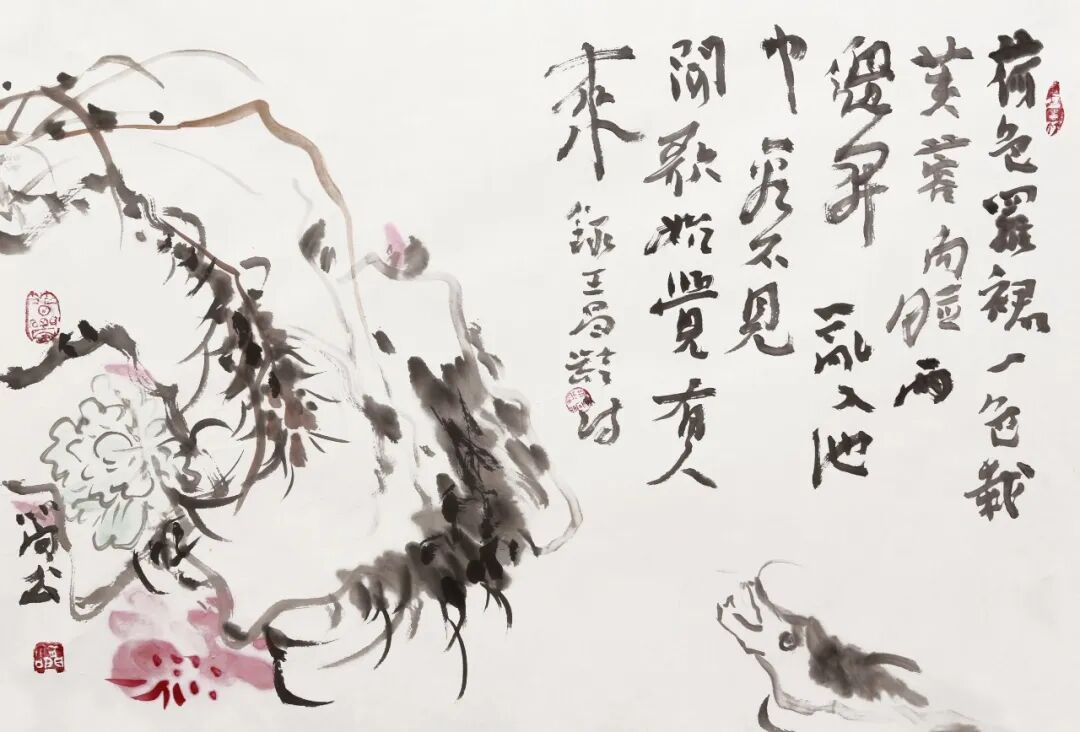 荷色羅裙一色裁
芙蓉向臉两
邊開亂入池
中看不見
聞歌始覺有人
來 録王昌齡詩